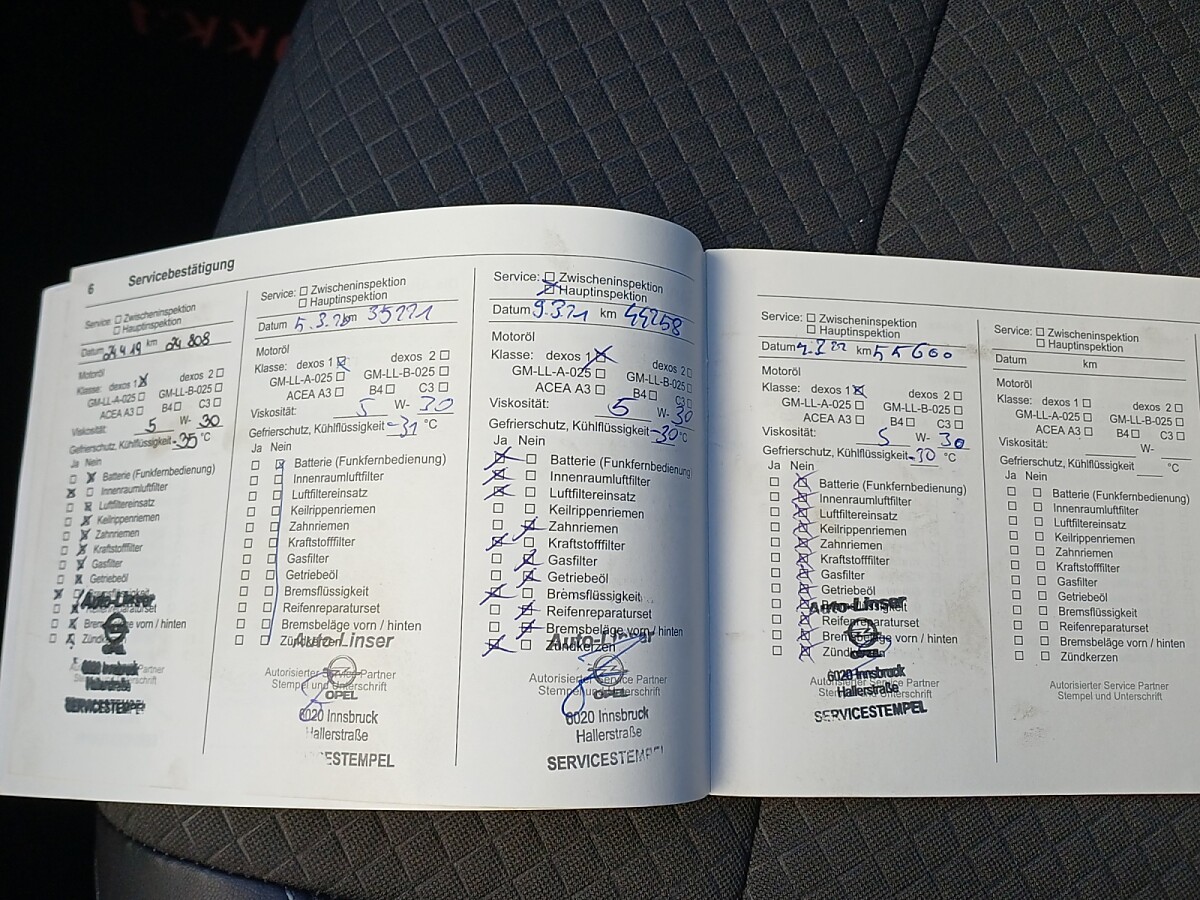 6 Servicebestätigung
Service: Zwischeninspektion
Hauptinspektion
Datum 24.4.19 km 24 808
Motoröl
Klasse: dexos 1 dexos 2
GM-LL-A-025 GM-LL-B-025
ACEA A3 B4 C3
Viskosität: 5 W- 30
Gefrierschutz, Kühlflüssigkeit -35 °C
Ja Nein
Batterie (Funkfernbedienung)
Innenraumluftfilter
Luftfiltereinsatz
Keilrippenriemen
Zahnriemen
Kraftstofffilter
Gasfilter
Getriebeöl
Auto-Linser
Bremsbeläge vorn / hinten
OPEL
6020 Innsbruck
Hallerstraße
SERVICESTEMPEL
Service: Zwischeninspektion
Hauptinspektion
Datum 5.3.20 km 35221
Motoröl
Klasse: dexos 1 dexos 2
GM-LL-A-025 GM-LL-B-025
ACEA A3 B4 C3
Viskosität: 5 W- 30
Gefrierschutz, Kühlflüssigkeit -31 °C
Ja Nein
Batterie (Funkfernbedienung)
Innenraumluftfilter
Luftfiltereinsatz
Keilrippenriemen
Zahnriemen
Kraftstofffilter
Gasfilter
Getriebeöl
Bremsflüssigkeit
Reifenreparaturset
Bremsbeläge vorn / hinten
Zündkerzen
Auto-Linser
Autorisierter Service Partner
Stempel und Unterschrift
OPEL
6020 Innsbruck
Hallerstraße
ESTEMPEL
Service: Zwischeninspektion
Hauptinspektion
Datum 9.3.21 km 44258
Motoröl
Klasse: dexos 1 dexos 2
GM-LL-A-025 GM-LL-B-025
ACEA A3 B4 C3
Viskosität: 5 W- 30
Gefrierschutz, Kühlflüssigkeit -30 °C
Ja Nein
Batterie (Funkfernbedienung)
Innenraumluftfilter
Luftfiltereinsatz
Keilrippenriemen
Zahnriemen
Kraftstofffilter
Gasfilter
Getriebeöl
Bremsflüssigkeit
Reifenreparaturset
Bremsbeläge vorn / hinten
Zündkerzen
Auto-Linser
Autorisierter Service Partner
Stempel und Unterschrift
OPEL
6020 Innsbruck
Hallerstraße
SERVICESTEMPEL
Service: Zwischeninspektion
Hauptinspektion
Datum km 55600
Motoröl
Klasse: dexos 1 dexos 2
GM-LL-A-025 GM-LL-B-025
ACEA A3 B4 C3
Viskosität: 5 W- 30
Gefrierschutz, Kühlflüssigkeit -30 °C
Ja Nein
Batterie (Funkfernbedienung)
Innenraumluftfilter
Luftfiltereinsatz
Keilrippenriemen
Zahnriemen
Kraftstofffilter
Gasfilter
Getriebeöl
Auto-Linser
Reifenreparaturset
Bremsbeläge vorn / hinten
Zündkerzen
OPEL
6020 Innsbruck
Hallerstraße
SERVICESTEMPEL
Service: Zwischeninspektion
Hauptinspektion
Datum km
Motoröl
Klasse: dexos 1 dexos 2
GM-LL-A-025 GM-LL-B-025
ACEA A3 B4 C3
Viskosität: W-
Gefrierschutz, Kühlflüssigkeit °C
Ja Nein
Batterie (Funkfernbedienung)
Innenraumluftfilter
Luftfiltereinsatz
Keilrippenriemen
Zahnriemen
Kraftstofffilter
Gasfilter
Getriebeöl
Bremsflüssigkeit
Reifenreparaturset
Bremsbeläge vorn / hinten
Zündkerzen
Autorisierter Service Partner
Stempel und Unterschrift